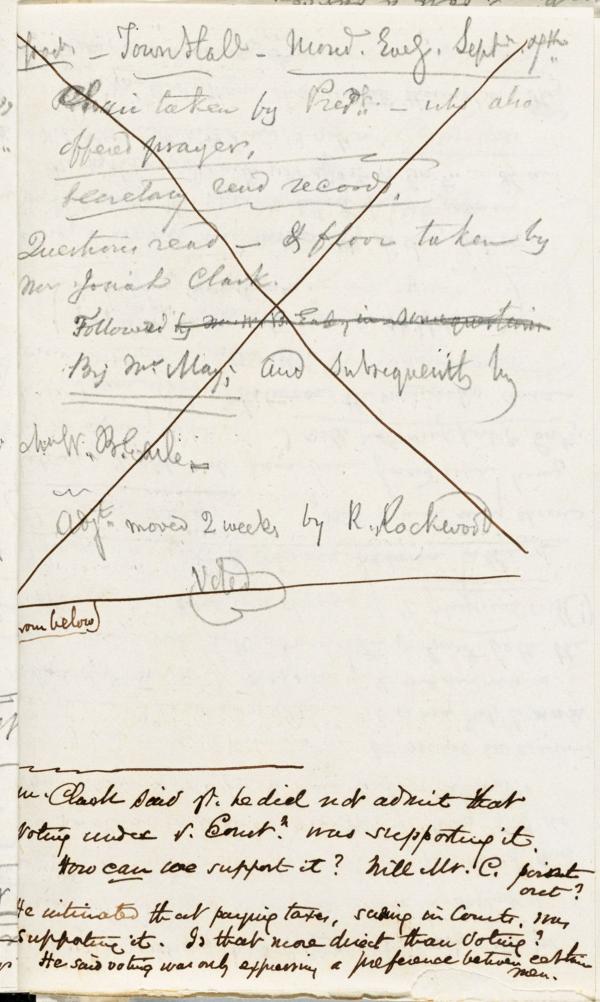 – Town Hall – Mond. Eveg. Sept. 7th
Chair taken by Prest. – who also
offered prayer.
Secretary read records.
Questions read – & floor taken by
Mr Josiah Clark.
Followed by Mr W. B. Earle, in same question
By Mr May; and subsequently by
Mr W. B. Earle.
Adjt. moved 2 weeks by R. Rockwood
Voted
from below)
Mr. Clark said yt. he did not admit that
voting under ye. Constn. was supporting it.
How can we support it? Will Mr. C. point
out?
He intimated that paying taxes, suing in Courts, was
supporting it. Is that more direct than voting?
He said voting was only expressing a preference between certain
men.